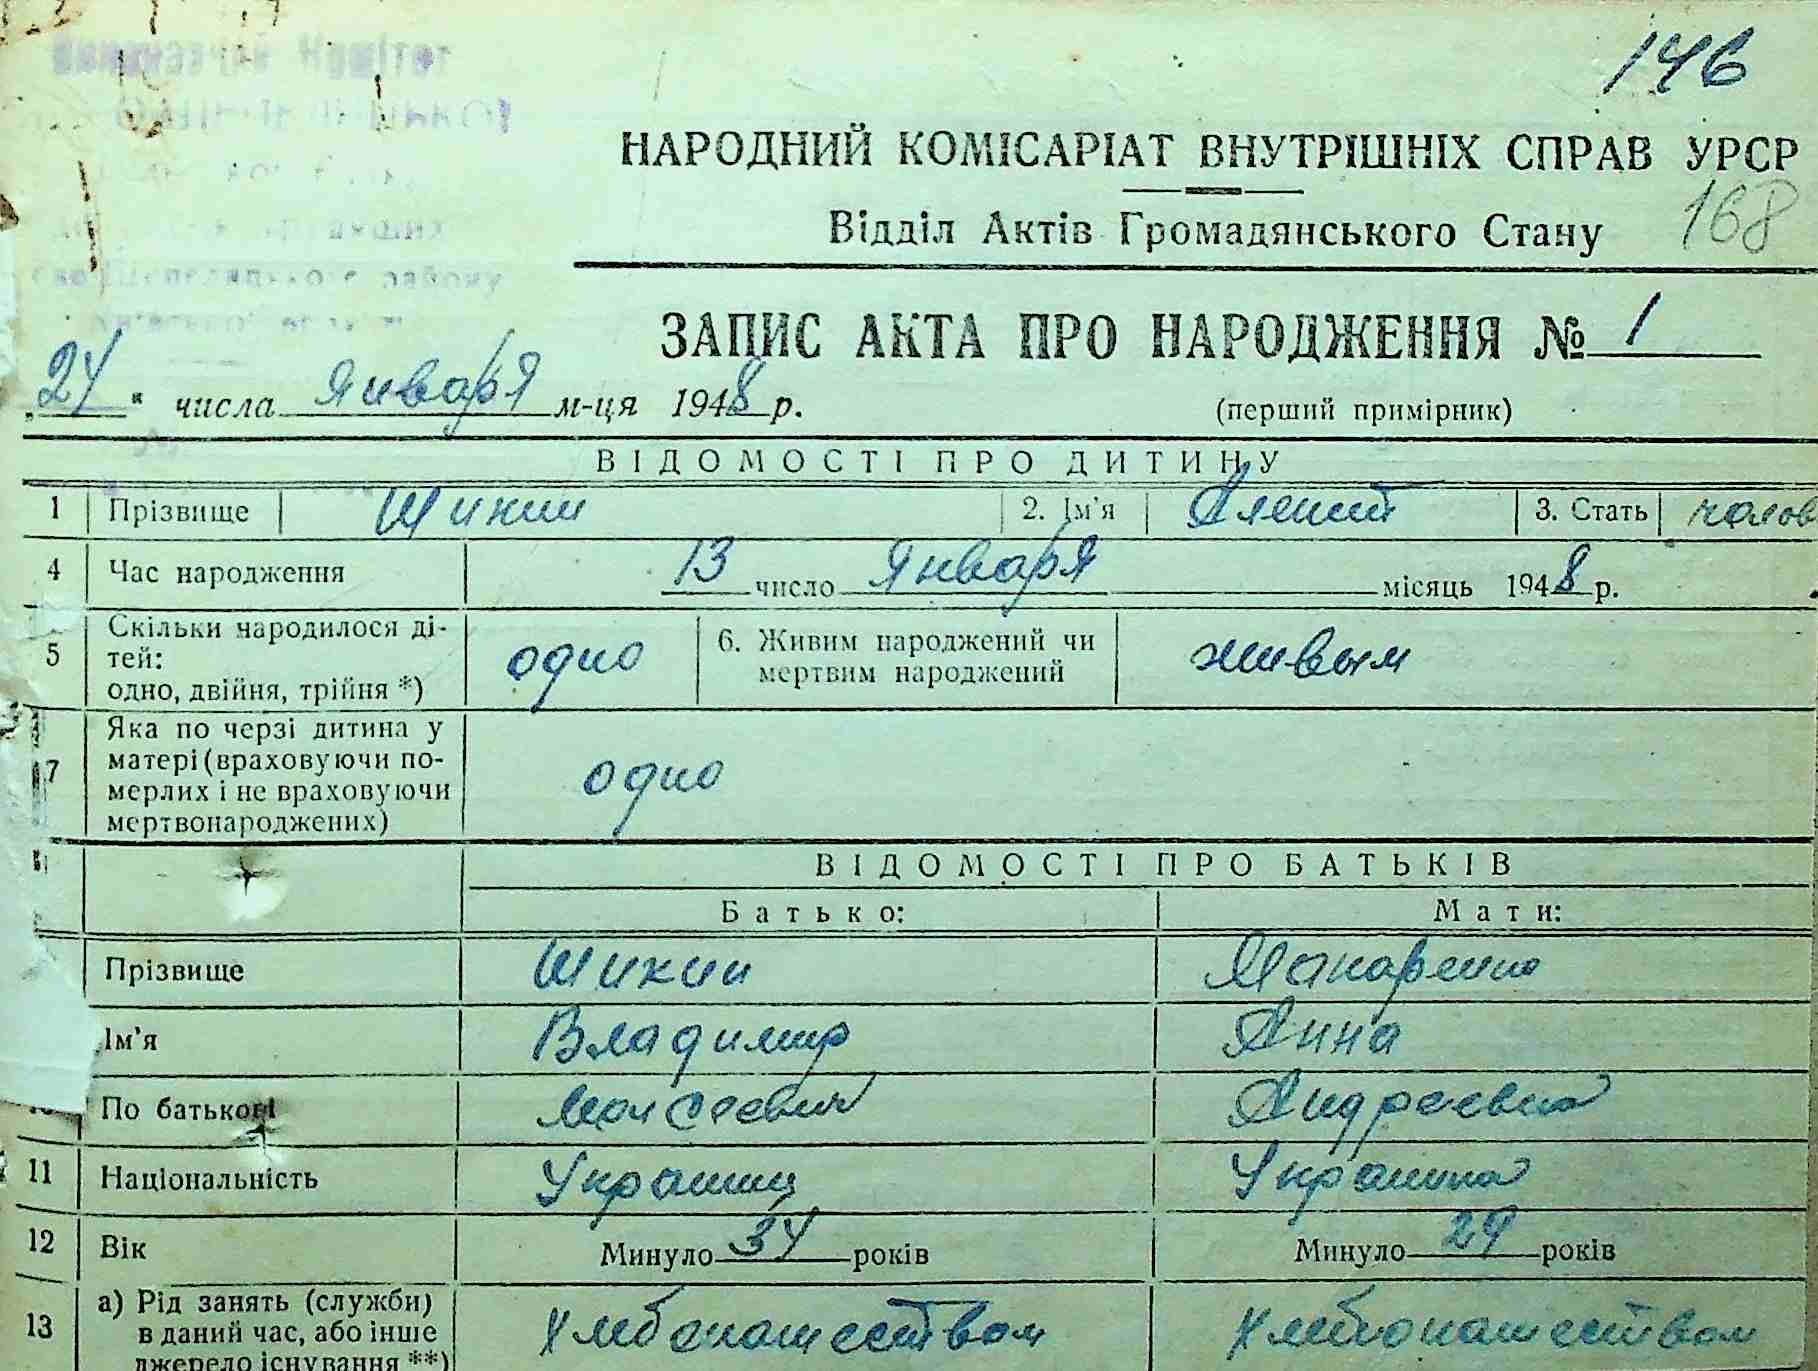 146
НАРОДНИЙ КОМІСАРІАТ ВНУТРІШНІХ СПРАВ УРСР
Відділ Актів Громадянського Стану 168
ЗАПИС АКТА ПРО НАРОДЖЕННЯ № 1
„24“ числа Января м-ця 1948 р. (перший примірник)
ВІДОМОСТІ ПРО ДИТИНУ
1 Прізвище Шикин 2. Ім'я 3. Стать чолов
4 Час народження 13 число Января місяць 1948 р.
5 Скільки народилося ді-
тей:
одно, двійня, трійня *) одно 6. Живим народжений чи
мертвим народжений живым
7 Яка по черзі дитина у
матері (враховуючи по-
мерлих і не враховуючи
мертвонароджених) одно
ВІДОМОСТІ ПРО БАТЬКІВ
Батько: Мати:
Прізвище Шикин Макаренко
Ім'я Владимир Анна
По батькові Моисеевич Андреевна
11 Національність Украинец Украинка
12 Вік Минуло 34 років Минуло 29 років
13 а) Рід занять (служби)
в даний час, або інше
джерело існування **) Хлебопашеством Хлебопашеством